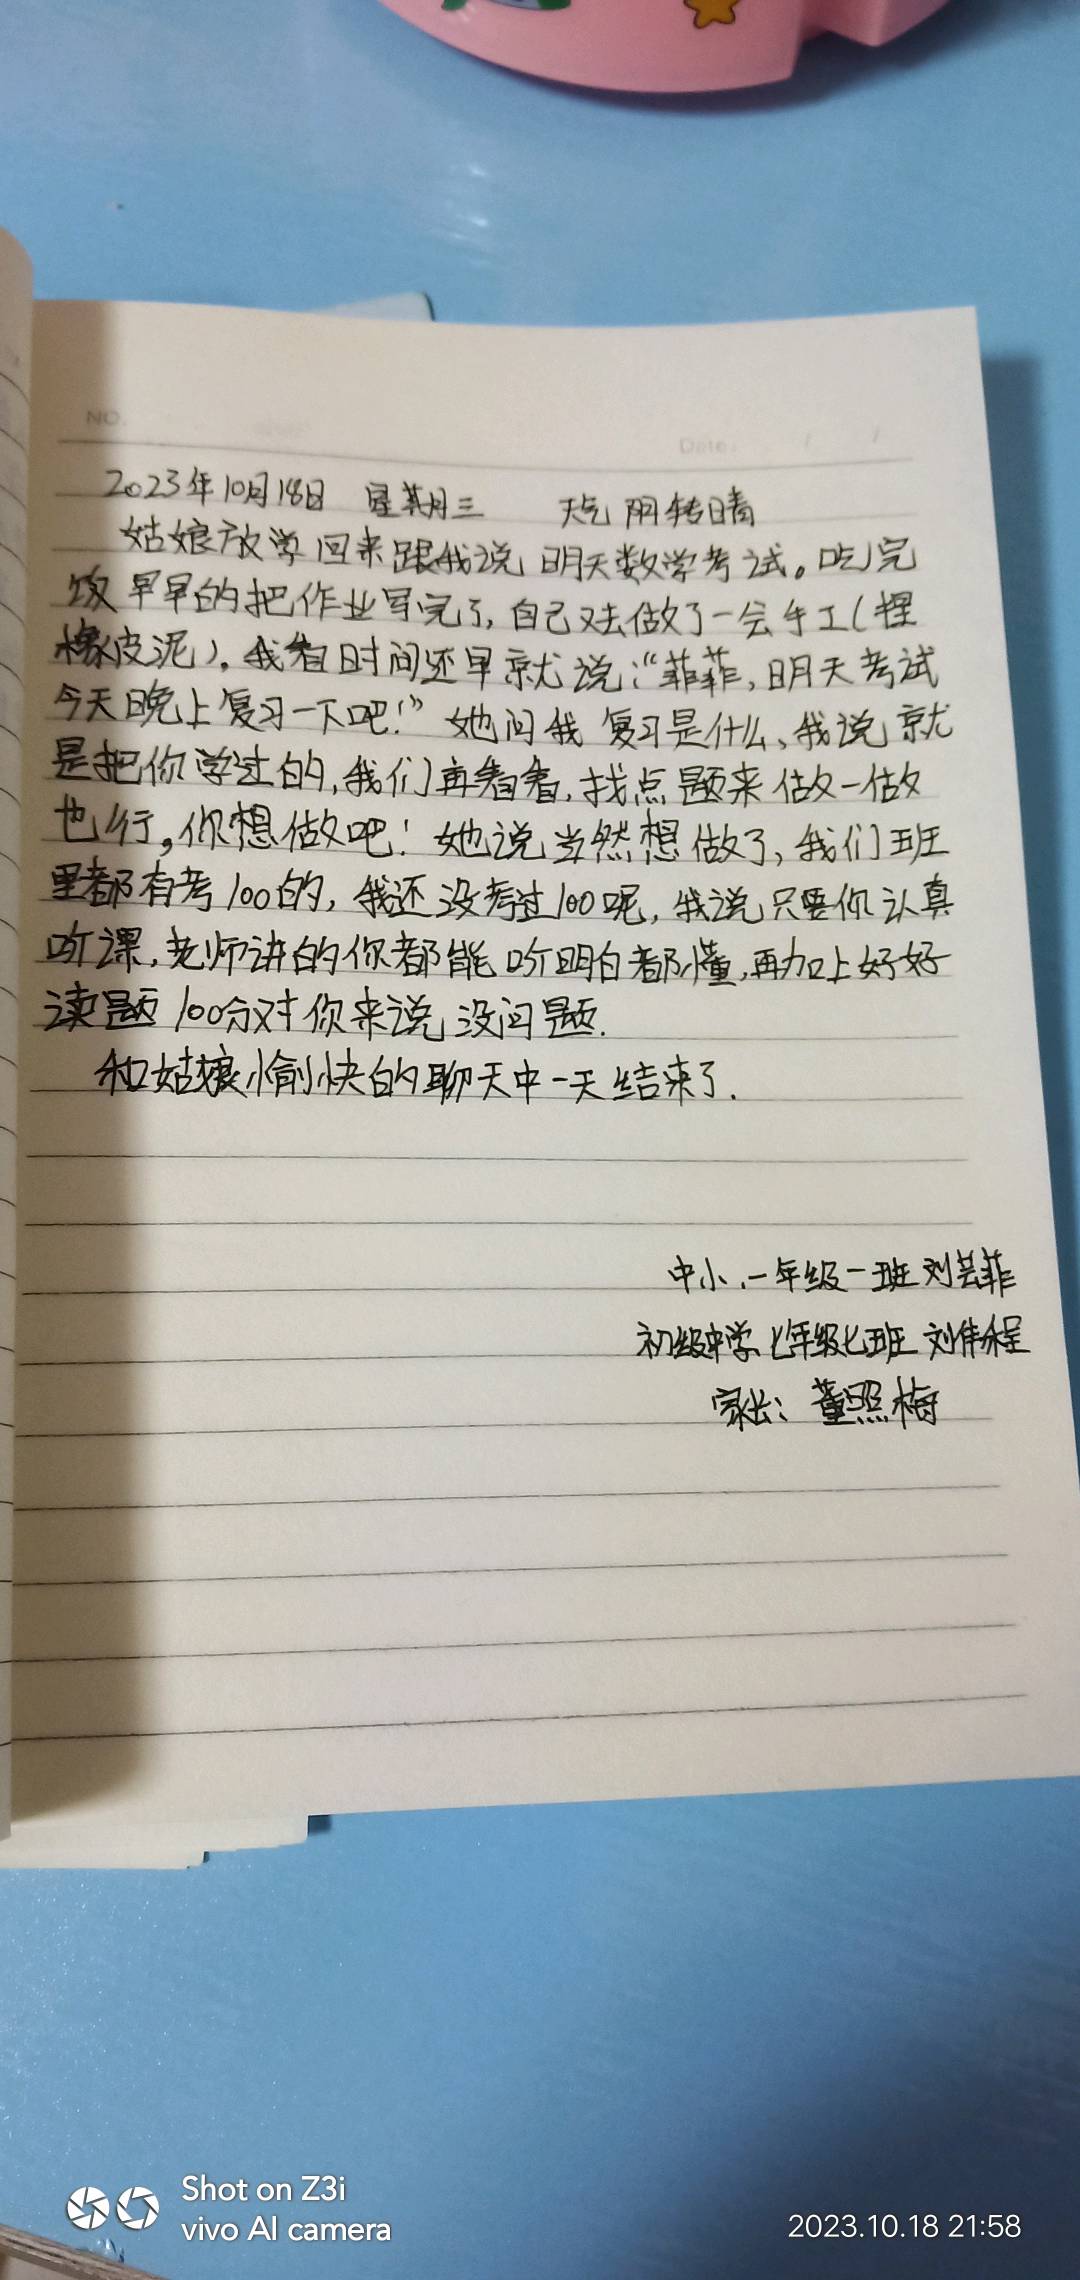 NO.
Date: / /
2023年10月18日 星期三 天气 阴转晴
姑娘放学回来跟我说明天数学考试。吃完
饭早早的把作业写完了,自己又去做了一会手工(捏
橡皮泥)。我看时间还早就说:“菲菲,明天考试
今天晚上复习一下吧!”她问我复习是什么、我说就
是把你学过的,我们再看看,找点题来做一做
也行。你想做吧!她说当然想做了,我们班
里都有考100的,我还没考过100呢,我说只要你认真
听课,老师讲的你都能听明白都懂,再加上好好
读题100分对你来说没问题.
和姑娘愉快的聊天中一天结束了.
中小.一年级一班 刘芸菲
初级中学七年级七班 刘伟程
家长:董照梅
Shot on Z3i
vivo AI camera
2023.10.18 21:58